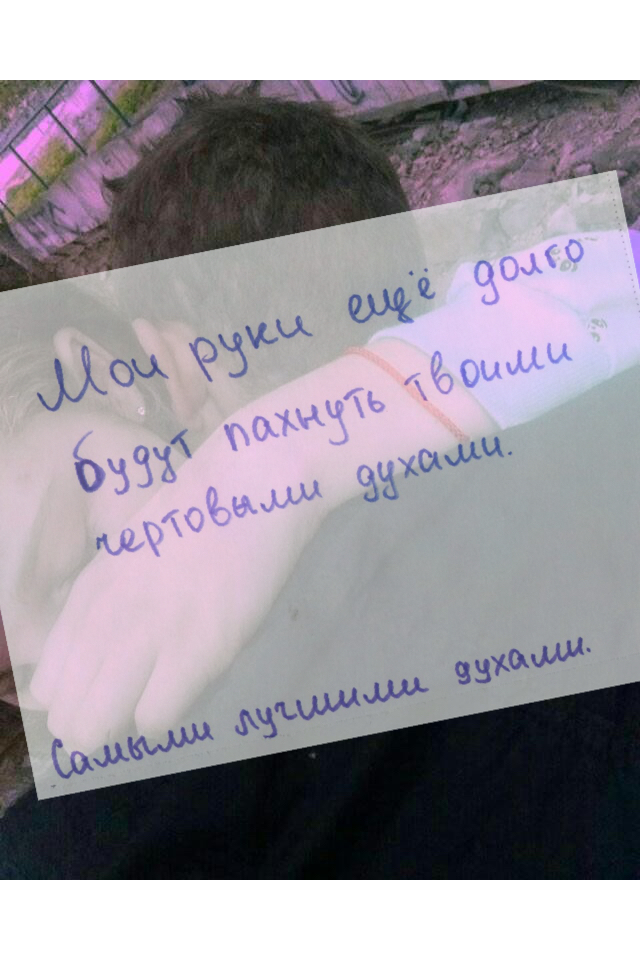 Мои руки ещё долго
будут пахнуть твоими
чертовыми духами.
Самыми лучшими духами.